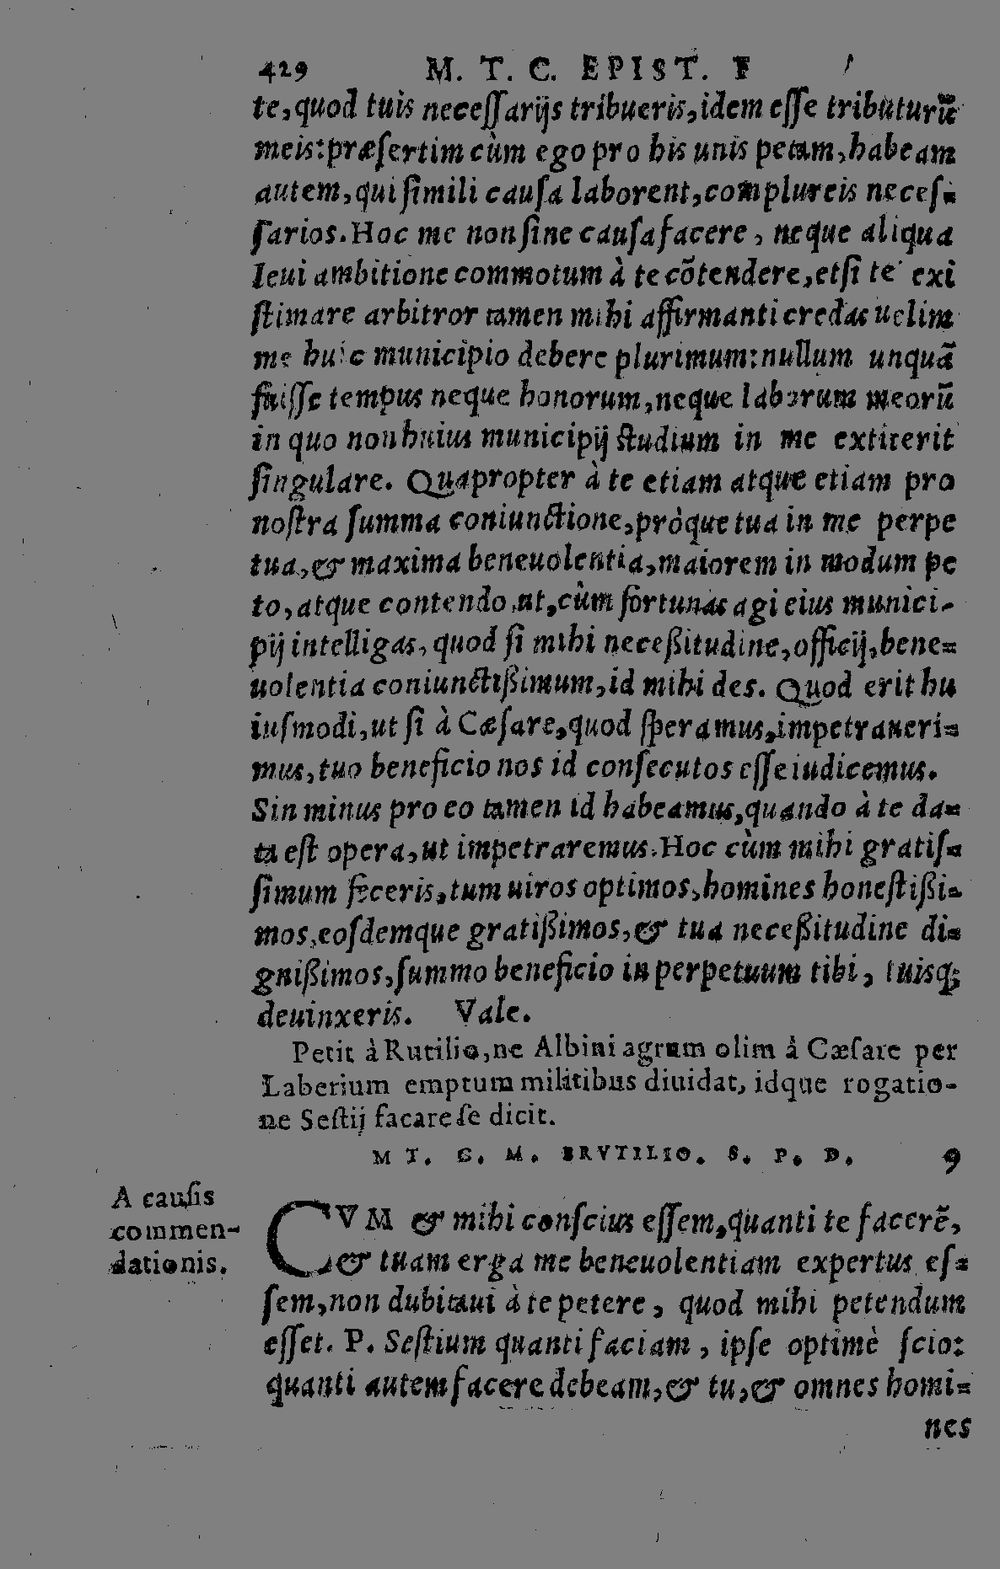 429 M. T. C. EPIST. F
te, quod tuis necessarijs tribueris, idem esse tributurū
meis: præsertim cùm ego pro his unis petam, habeam
autem, qui simili causa laborent, complureis neces-
sarios. Hoc me non sine causa facere, neque aliqua
leui ambitione commotum à te cōtendere, etsi te exi
stimare arbitror tamen mihi affirmanti credas uelim
me huic municipio debere plurimum: nullum unquā
fuisse tempus neque honorum, neque laborum meorū
in quo non huius municipij studium in me extiterit
singulare. Quapropter à te etiam atque etiam pro
nostra summa coniunctione, próque tua in me perpe
tua, & maxima beneuolentia, maiorem in modum pe
to, atque contendo ut, cùm fortunas agi eius munici-
pij intelligas, quod si mihi neceßitudine, officij, bene-
uolentia coniunctißimum, id mihi des. Quod erit hu
iusmodi, ut si à Cæsare, quod speramus, impetraueri-
mus, tuo beneficio nos id consecutos esse iudicemus.
Sin minus pro eo tamen id habeamus, quando à te da-
ta est opera, ut impetraremus. Hoc cùm mihi gratis-
simum feceris, tum uiros optimos, homines honestißi-
mos, eosdemque gratißimos, & tua neceßitudine di-
gnißimos, summo beneficio in perpetuum tibi, tuisq;
deuinxeris. Vale.
Petit à Rutilio, ne Albini agrum olim à Cæsare per
Laberium emptum militibus diuidat, idque rogatio-
ne Sestij facare se dicit.
M T. C. M. BRVTILIO. S. P. D. 9
A causis
commen-
dationis.
CVM & mihi conscius essem, quanti te facerē,
& tuam erga me beneuolentiam expertus es-
sem, non dubitaui à te petere, quod mihi petendum
esset. P. Sestium quanti faciam, ipse optimè scio:
quanti autem facere debeam, & tu, & omnes homi-
nes